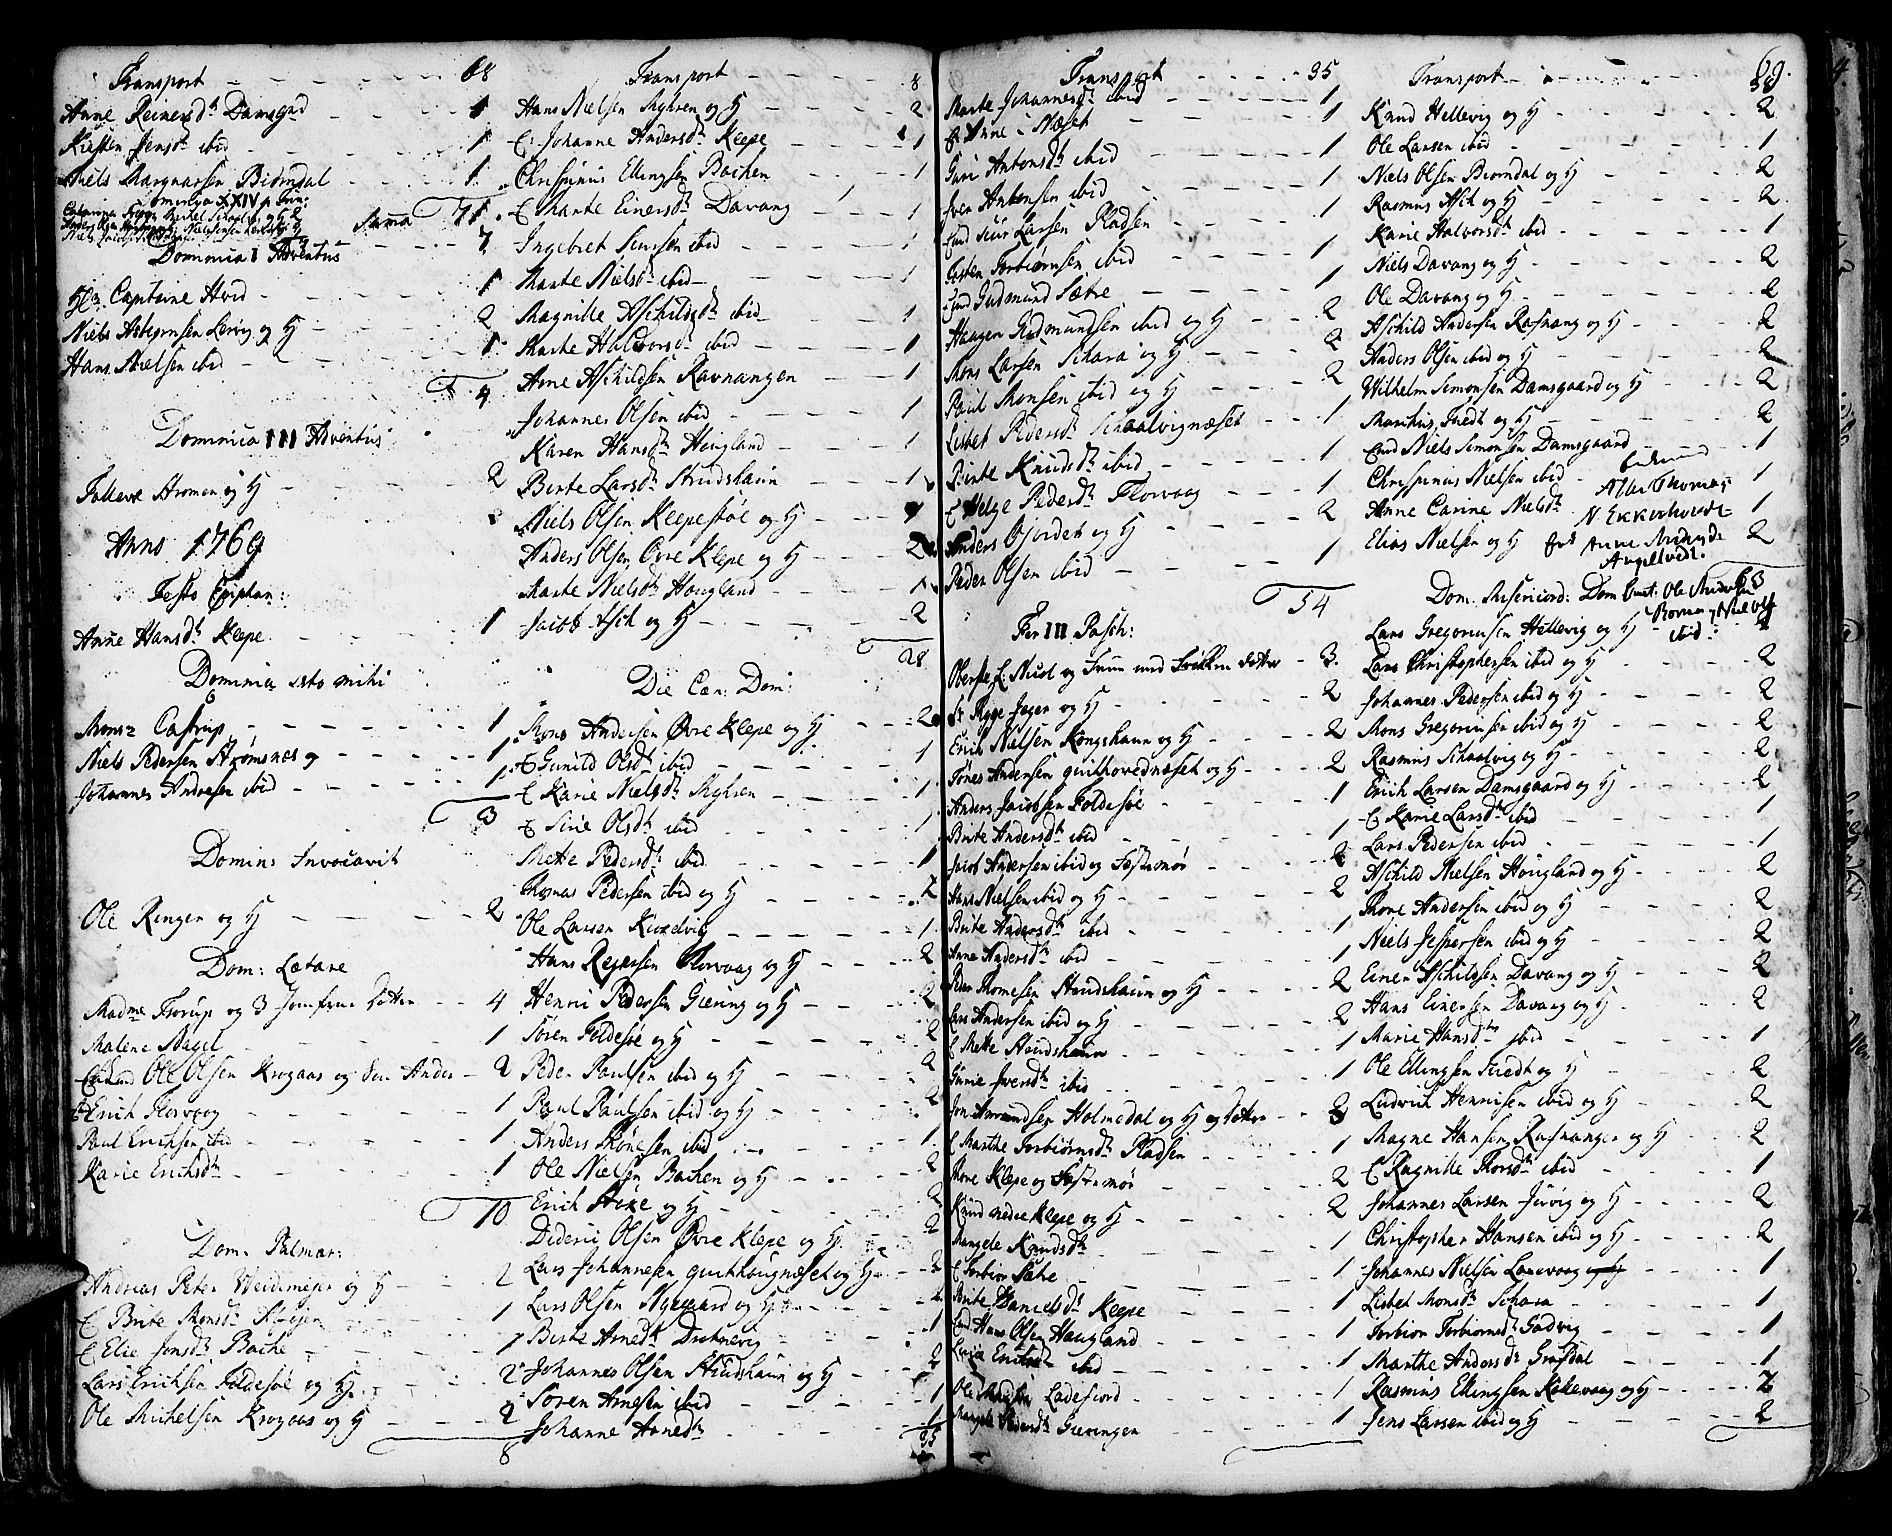 Transport 68
Anne Reinersdr Damsgrd 1
Kirsten Jensdr ibid 1
Niels Margaarsen Biörndal 1
Dominica XXIV p Trin:
Summa 71
Dominica I Adventus
Hr Captaine Hvid 1
Niels Asbiörnsen Lervig og H 2
Hans Nielsen ibid 1
4
Dominica III Adventus
Tolleve Aromen og H 2
Anno 1769
Festo Epiphan:
Anne Hansdr Klepe 1
Dominica esto mihi
Monsr Castrup 1
Niels Pedersen Strömsnes 1
Johannes Andresen ibid 1
3
Domin: Invocavit
Ole Ringen og H 2
Dom: Lætare
Madme Torup og 3 Jomfrue Dötter 4
Malene Nagel 1
Ole Olsen Krogaas og Sön Anders 2
Erich Florvaag 1
Poul Erichsen ibid 1
Karie Erichsdr 1
10
Dom. Palmar:
Andreas Peter Weidemejer og H 2
C Brite Monsdr 1
C Elie Jonsdr Bache 1
Lars Erichsen Foldesöe og H 2
Ole Michelsen Krogaas og H 2
8
Transport 8
Hans Nielsen Myhren og H 2
C: Johanne Andersdr Klepe 1
Chrispinus Ellingsen Bachen 1
C Marite Einersdr Davang 1
Ingebret Simsen ibid 1
Marite Nielsdr ibid 1
Magnilde Aschildsdr ibid 1
Marite Halvorsdr ibid 1
Arne Aschildsen Ravnangen 1
Johannes Olsen ibid 1
Karen Hansdr Hougland 1
Berte Larsdr Strudshavn 1
Niels Olsen Klepestöe og H
Anders Olsen Övre Klepe og H 2
Marite Nielsdr Hougland 1
Jacob Ask og H 2
28
Die Cœn: Dom:
Mons Andersen Övre Klepe og H 2
C Gunild Olsdr ibid 1
C Karie Nielsdr Myhren 1
C Sirie Olsdr ibid 1
Mette Pedersdr ibid 1
Thomas Pedersen ibid og H 2
Ole Larsen Kiredvig 1
Hans Regersen Florvaag og H 2
Henric Pedersen Giering og H 2
Sören Foldesöe og H 2
Peder Paulsen ibid og H 2
Paul Paulsen ibid og H 2
Anders Mönesen ibid 1
Ole Nielsen Bachen og H 2
Erich Höxe og H 2
Dideric Olsen Övre Klepe og H 2
Lars Johannesen quithougnæset og H 2
Lars Olsen Nygaard og H
Berte Arnedr Drotnevig 1
Johannes Olsen Strudshavn og H 2
Sören Arnesen ibid 1
Johanne Arnedr 1
35
Transport 35
Marte Johannesdr ibid 1
C Anne i Næset 1
Guri Antonsdr ibid 1
Iver Antonsen ibid 1
Siur Larsen Pladsen 1
Torbiörnsen ibid 1
Gudmund Sætre 1
Haagen Gudmundsen ibid og H 2
Mons Larsen Schara og H 2
Poul Monsen ibid og H 2
Lisbet Pedersdr Schaalvignæset 1
Birte Knudsdr ibid 1
C Helge Pedersdr Florvaag 1
Anders Gjordet og H 2
Peder Olsen ibid 1
54
Fer III Pasch:
3
Sr Rygge Jeger og H 2
Erich Nielsen Kongshavn og H 2
Tönes Andersen quithovednæset og H 2
Anders Jacobsen Foldesöe 1
Brite Andersdr ibid 1
Jacob Andersen ibid og Fostermor 2
Hans Nielsen ibid og H 2
Brite Andersdr ibid 1
Anne Andersdr ibid 1
Peder Thomesen Strudshavn og H 2
Lars Andersen ibid og H 2
C Mette Strudshavn 1
Gurie Iversdr ibid 1
Jon Amundsen Holmedal og H og Dotter 3
C Marthe Torbiörnsdr Pladsen 1
Mone Klepe og Fostermor 2
Knud nedre Klepe og H 2
Mangele Knudsdr 1
C Torbior Sætre 1
Brite Danielsdr Klepe 1
Hans Olsen Haugland 1
Erichsdr ibid 1
Ladefiord 1
Pedersdr Gieringen 1
Transport 69.
Knud Hellevig og H 2
Ole Larsen ibid 1
Niels Olsen Biorndal og H 2
Rasmus Ask og H 2
Karie Halvorsdr ibid 1
Niels Davang og H 2
Ole Davang og H 2
Aschild Andersen Rafnang og H 2
Anders Olsen ibid og H 2
Wilhelm Simonsen Damsgaard og H 2
Marchus Tvedt og H 2
Niels Simonsen Damsgaard 1
Chrispinus Nielsen ibid 1
Anne Carine Nielsdr 1
Elias Nielsen og H 2
Albr Thomas
Dom. Misericord: Dom
Lars Gregoriusen Hellevig og H
ibid
Lars Christophersen ibid og H 2
Johannes Pedersen ibid og H 2
Mons Gregoriusen ibid og H 2
Rasmus Schaalvig og H 2
Erich Larsen Damsgaard og H 2
C Karie Larsdr ibid 1
Lars Pedersen ibid 1
Aschild Nielsen Hougland og H 2
Mone Andersen ibid og H 2
Niels Jespersen ibid og H 2
Einer Aschildsen Davang og H 2
Hans Einersen Davang og H 2
Marie Hansdr ibid 1
Ole Ellingsen Tvedt og H 2
Ludvich Hennisen ibid og H 2
Magne Hansen Rafnanger og H 2
C Ragnilde Thorsdr ibid 1
Johannes Larsen Jervig og H 2
Christopher Hansen ibid og H 2
Johannes Nielsen Lonevaag og H 1
Lisbet Monsdr Schara 1
Torbior Torbiornsdr Gadvig 1
Marthe Andersdr Grafdal 1
Rasmus Ellingsen Kokevaag og H 2
Jens Larsen ibid og H 2